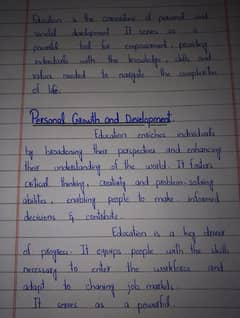 Education is the cornerstone of personal and
societal development It serves as a
powerful tool for empowerment, providing
individuals with the knowledge, skills and
values needed to navigate the complexities
of life.
Personal Growth and Development.
Education enriches individuals
by broadening their perspectives and enhancing
their understanding of the world. It fosters
critical thinking, creativity and problem-solving
abilities, enabling people to make informed
decisions & contribute.
Education is a key driver
of progress. It equips people with the skills
necessary to enter the workforce and
adapt to chaning job markets.
It serves as a powerful